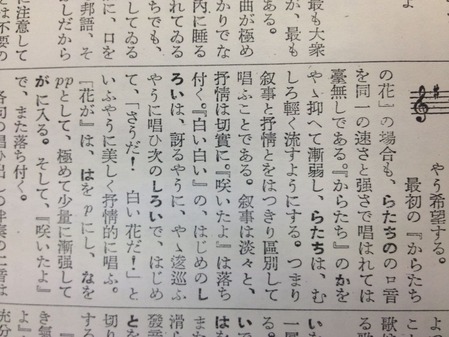 最も大衆
が、最も
曲が極め
かりでな
内に睡る
れてゐる
ちでも、
してゐる
に、口を
しだから
邦語、そ
に注意して
は不要の
やう希望する。
最初の『からたち
の花』の場合も、らたちのの口音
を同一の速さと强さで唱はれては
臺無しである。『からたち』のかを
やゝ抑へて漸弱し、らたちは、む
しろ輕く流すようにする。つまり
敍事と抒情とをはつきり區別して
唱ふことである。敍事は淡々と、
抒情は切實に。『咲いたよ』は落ち
付く。『白い白い』の、はじめのし
ろいは、訝るやうに、やゝ逡巡ふ
やうに唱ひ次のしろいで、はじめ
て、「さうだ！　白い花だ！」と
いふやうに美しく抒情的に唱ふ。
『花が』は、はをpにし、なを
ppとして、極めて少量に漸强して
がに入る。そして、『咲いたよ』
で、また落ち付く。